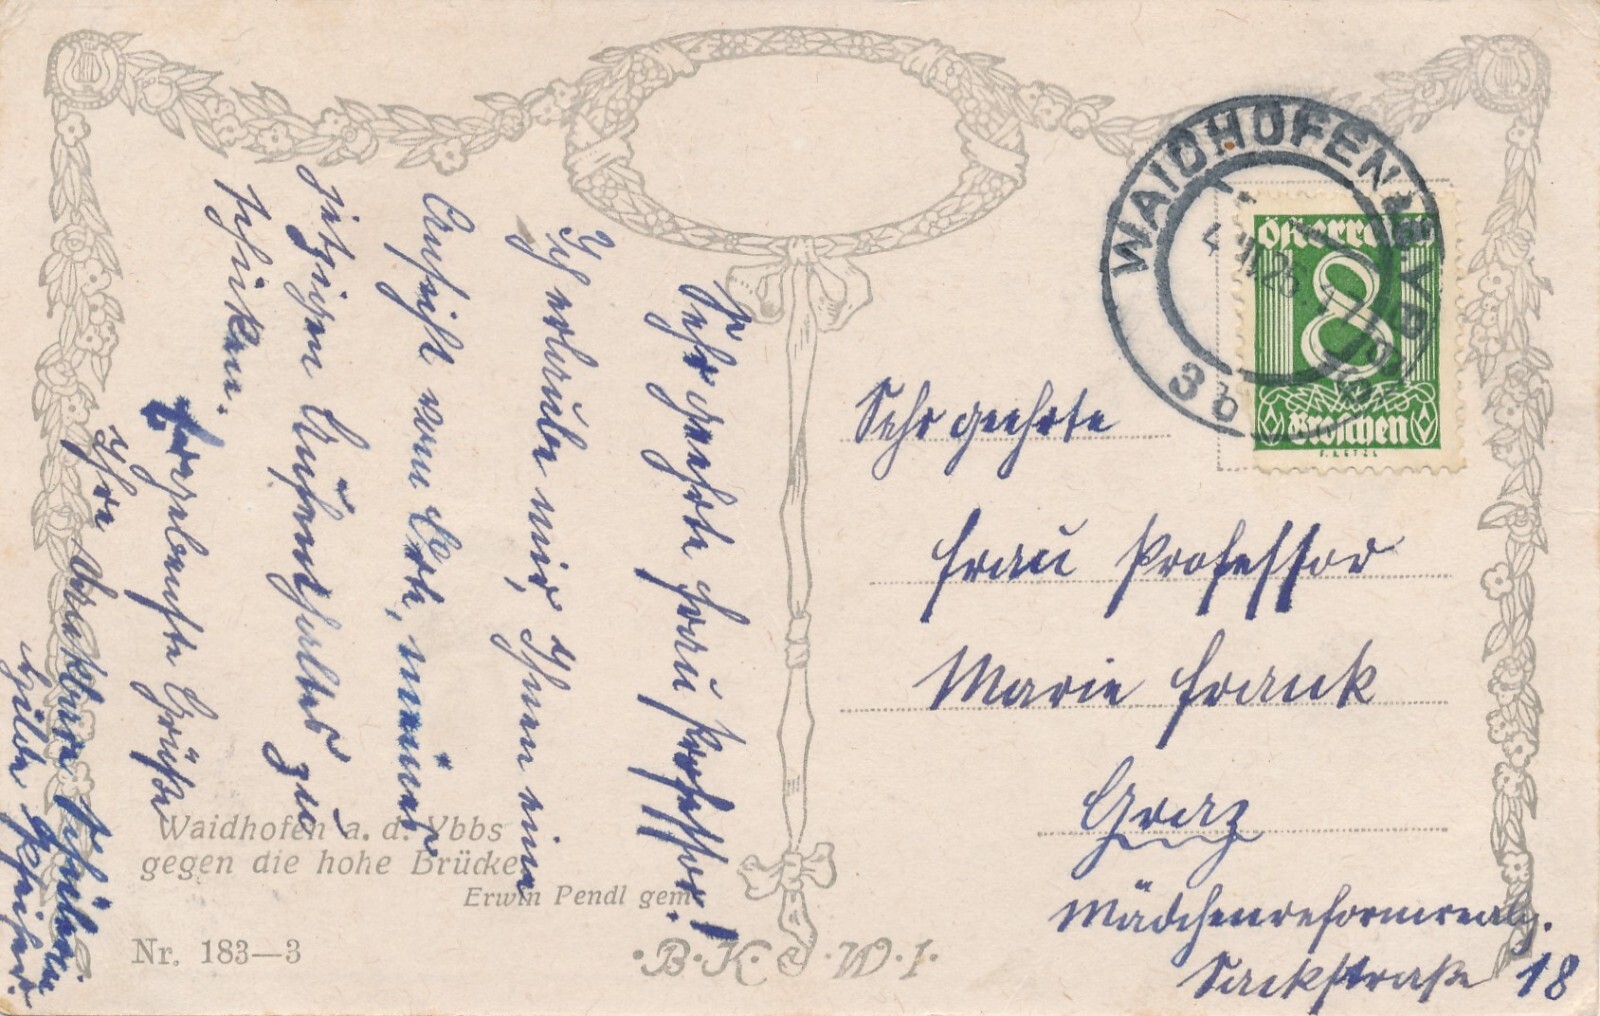 Sehr geehrte Frau Professor!
Ich erlaube mir, Ihnen eine
Ansicht vom Orte, meines
jetzigen Aufenthaltes zu
schicken.
Ergebenste Grüße
Ihre dankbare Schülerin
Hilde
WAIDHOFEN a. d. YBBS
3b
Österreich
8
Groschen
Sehr geehrte
Frau Professor
Marie Franck
Graz
Mädchenreformrealg.
Sackstraße 18
Waidhofen a. d. Ybbs
gegen die hohe Brücke
Erwin Pendl gem.
Nr. 183—3
·B·K·W·I·